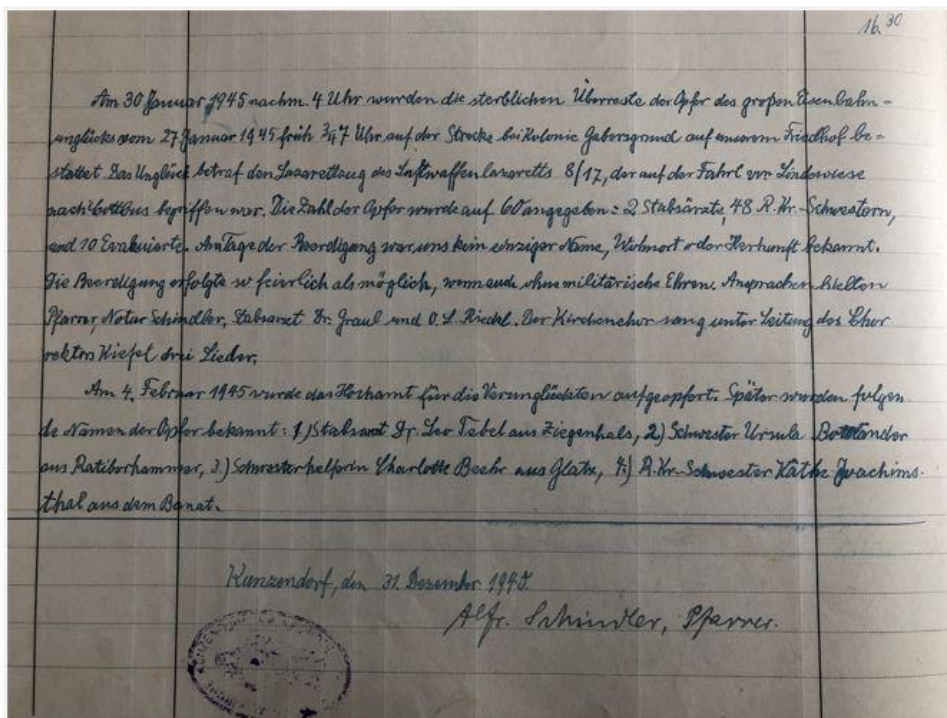 16. 30
Am 30 Januar 1945 nachm. 4 Uhr wurden die sterblichen Überreste der Opfer des großen Eisenbahn=
unglücks vom 27 Januar 1945 früh 3/4 7 Uhr auf der Strecke bei Kolonie Gabersgrund auf unserem Friedhof be=
stattet. Das Unglück betraf den Lazarettzug des Luftwaffenlazaretts 8/17, der auf der Fahrt von Lindewiese
nach Cottbus begriffen war. Die Zahl der Opfer wurde auf 60 angegeben = 2 Stabsärzte, 48 R. Kr.-Schwestern,
und 10 Evakuierte. Am Tage der Beerdigung war uns kein einziger Name, Wohnort oder Herkunft bekannt.
Die Beerdigung erfolgte so feierlich als möglich, wenn auch ohne militärische Ehren. Ansprachen hielten
Pfarrer, Notar Schindler, Stabsarzt Dr. Graul und O. L. Riedel. Der Kirchenchor sang unter Leitung des Chor
rektors Kiefel drei Lieder.
Am 4. Februar 1945 wurde das Hochamt für die Verunglückten aufgeopfert. Später wurden folgen
de Namen der Opfer bekannt: 1.) Stabsarzt Dr. Leo Tebel aus Ziegenhals, 2.) Schwester Ursula Bottländer
aus Ratiborhammer, 3.) Schwesterhelferin Charlotte Beehr aus Glatz, 4.) R. Kr.-Schwester Käthe Joachims-
thal aus dem Banat.
Kunzendorf, den 31. Dezember 1945.
Alfr. Schindler, Pfarrer.